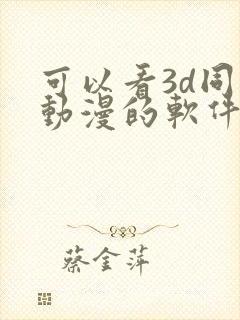 可以看3d同
動漫的軟件
蔡金萍